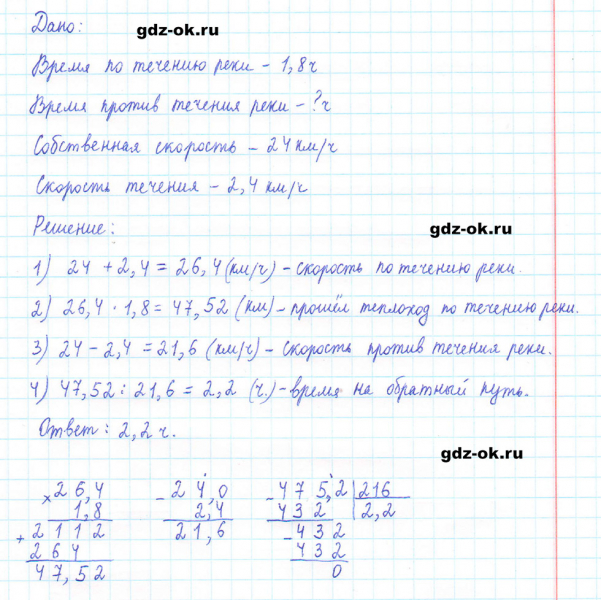 Дано:
gdz-ok.ru
Время по течению реки – 1,8ч
Время против течения реки – ? ч
Собственная скорость – 24 км/ч
Скорость течения – 2,4 км/ч
Решение:
gdz-ok.ru
1) 24 + 2,4 = 26,4 (км/ч) – скорость по течению реки.
2) 26,4 · 1,8 = 47,52 (км) – прошёл теплоход по течению реки.
3) 24 – 2,4 = 21,6 (км/ч) – скорость против течения реки.
4) 47,52 : 21,6 = 2,2 (ч.) – время на обратный путь.
Ответ: 2,2 ч.
gdz-ok.ru
× 26,4
1,8
+ 2112
264
47,52
– 24,0
2,4
21,6
– 475,2 | 216
432 | 2,2
– 432
432
0